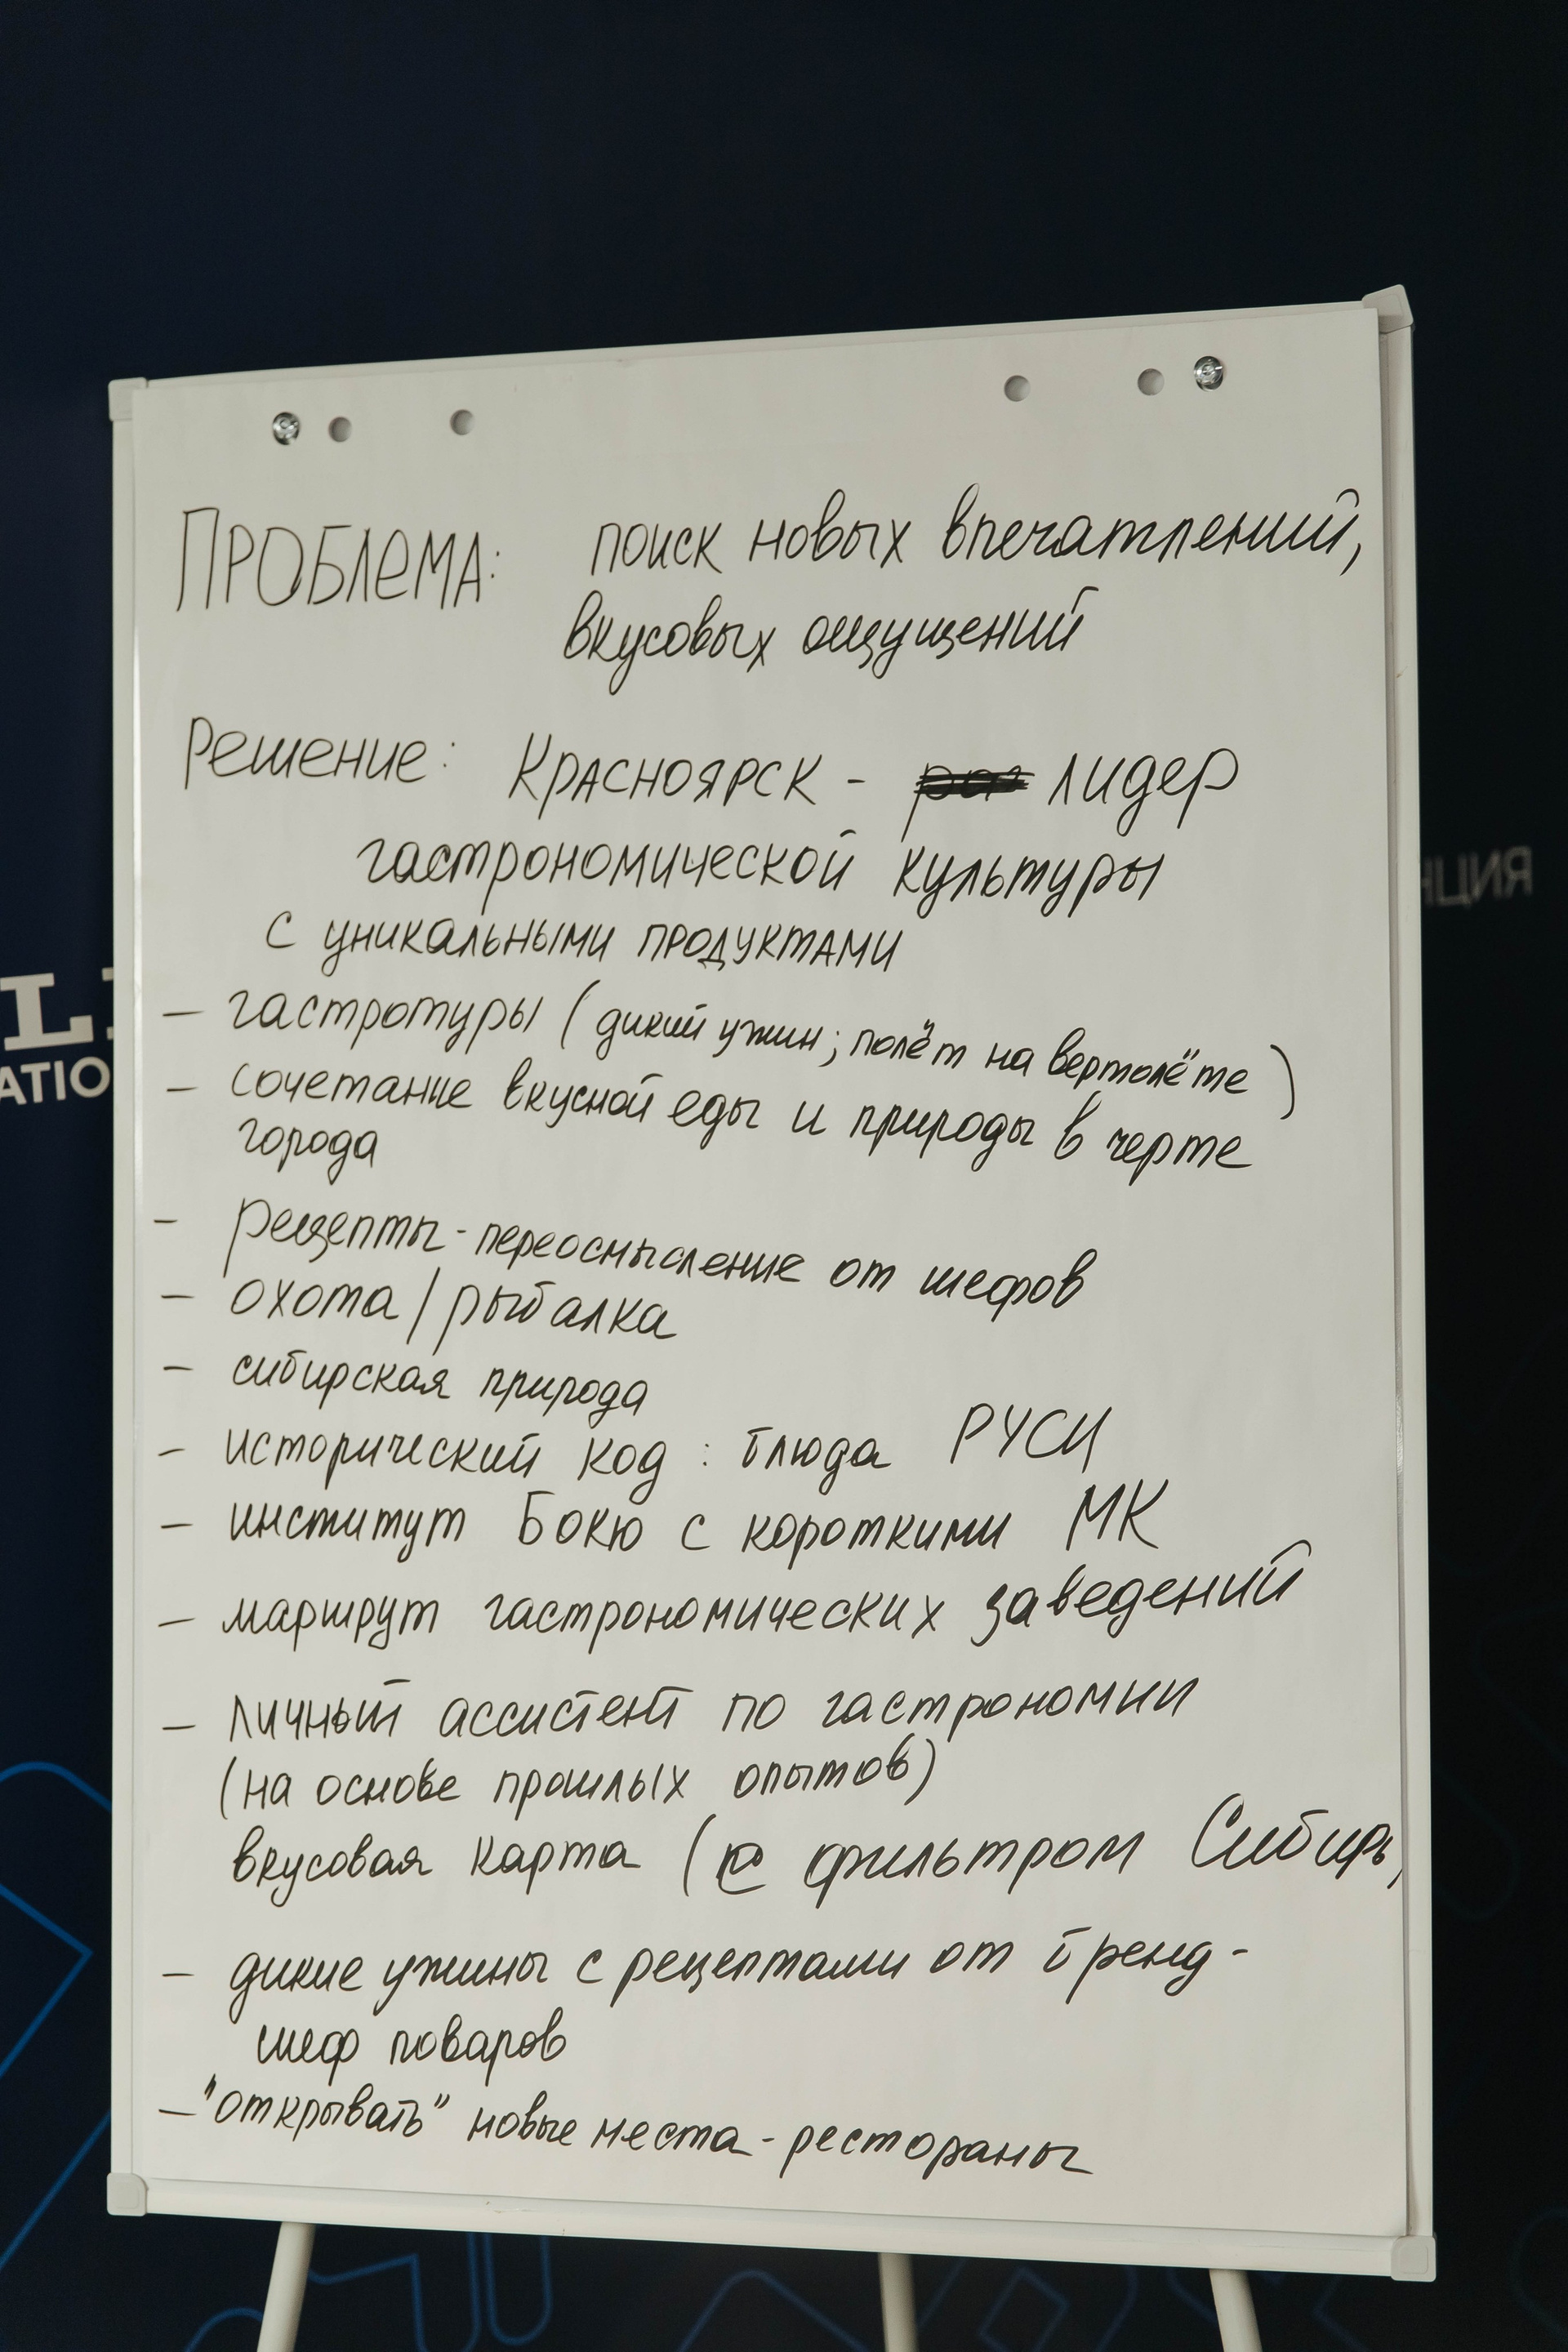 Проблема: поиск новых впечатлений,
вкусовых ощущений
Решение: Красноярск - лидер
гастрономической культуры
с уникальными продуктами
– гастротуры (дикий ужин; полёт на вертолёте)
– сочетание вкусной еды и природы в черте
города
- рецепты-переосмысление от шефов
– охота / рыбалка
– сибирская природа
– исторический код : блюда РУСИ
– институт Бокю с короткими МК
– маршрут гастрономических заведений
– личный ассистент по гастрономии
(на основе прошлых опытов)
вкусовая карта (с фильтром Сибирь)
– дикие ужины с рецептами от бренд-
шеф поваров
– "открывать" новые места-рестораны
ATIO
ЦИЯ